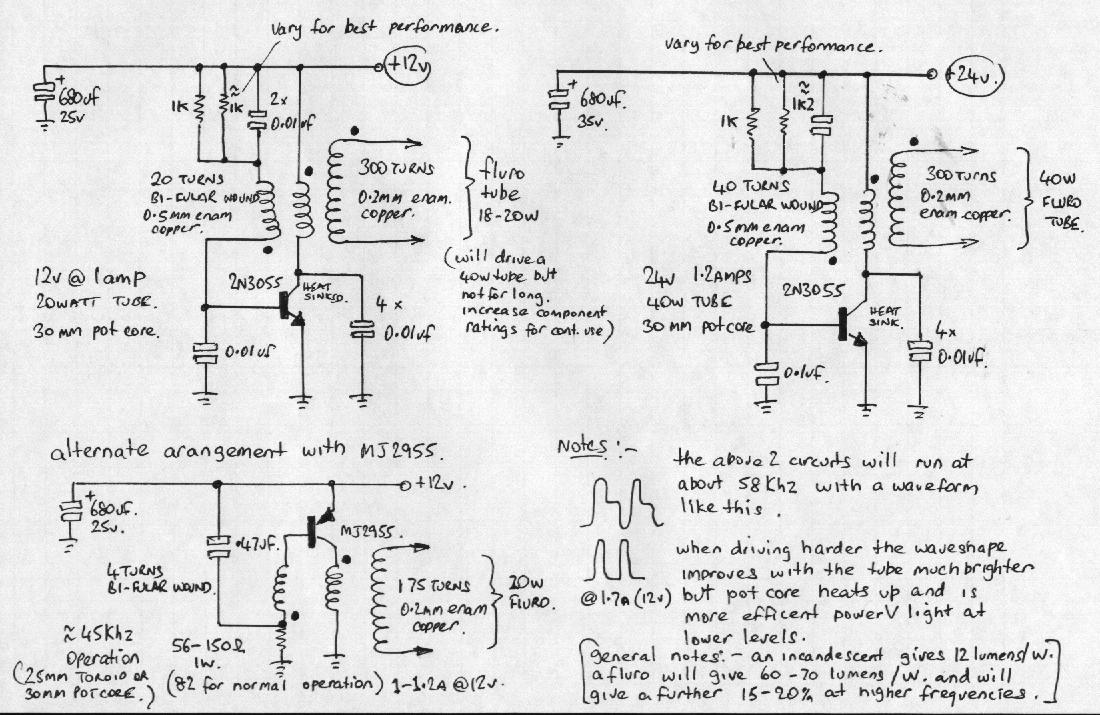 vary for best performance.
+12v
+
680uf
25v
1K
≈
1K
2x
0.01uf
20 TURNS
BI-FULAR WOUND
0.5mm enam
copper.
300 TURNS
0.2mm enam.
copper.
fluro
tube
18-20W
(will drive a
40w tube but
not for long.
increase component
ratings for cont. use)
12v @ 1amp
20WATT TUBE.
30mm pot core.
2N3055
HEAT
SINKED.
4 x
0.01uf
0.01uf
vary for best performance.
+24v.
+
680uf.
35v.
1K
≈
1K2
40 TURNS
BI-FULAR WOUND
0.5mm enam
copper.
300 TURNS
0.2mm
enam copper.
40W
FLURO
TUBE.
24v 1.2AMPS
40W TUBE
30mm pot core
2N3055
HEAT
SINK.
4x
0.01uf.
0.1uf.
alternate arangement with MJ2955.
+12v.
+
680uf.
25v.
.47uf.
MJ2955.
4 TURNS
BI-FULAR WOUND.
175 TURNS
0.2mm enam
copper.
20W
FLURO.
≈45Khz
Operation
(25mm TOROID OR
30mm POTCORE.)
56-150Ω
1W.
(82 for normal operation) 1-1.2A @12v.
Notes :-
the above 2 circuits will run at
about 58Khz with a waveform
like this.
when driving harder the waveshape
improves with the tube much brighter
@1.7A (12v) but pot core heats up and is
more efficent power V light at
lower levels.
[general notes:- an incandescent gives 12 lumens/w.
a fluro will give 60-70 lumens/w. and will
give a further 15-20% at higher frequencies.]